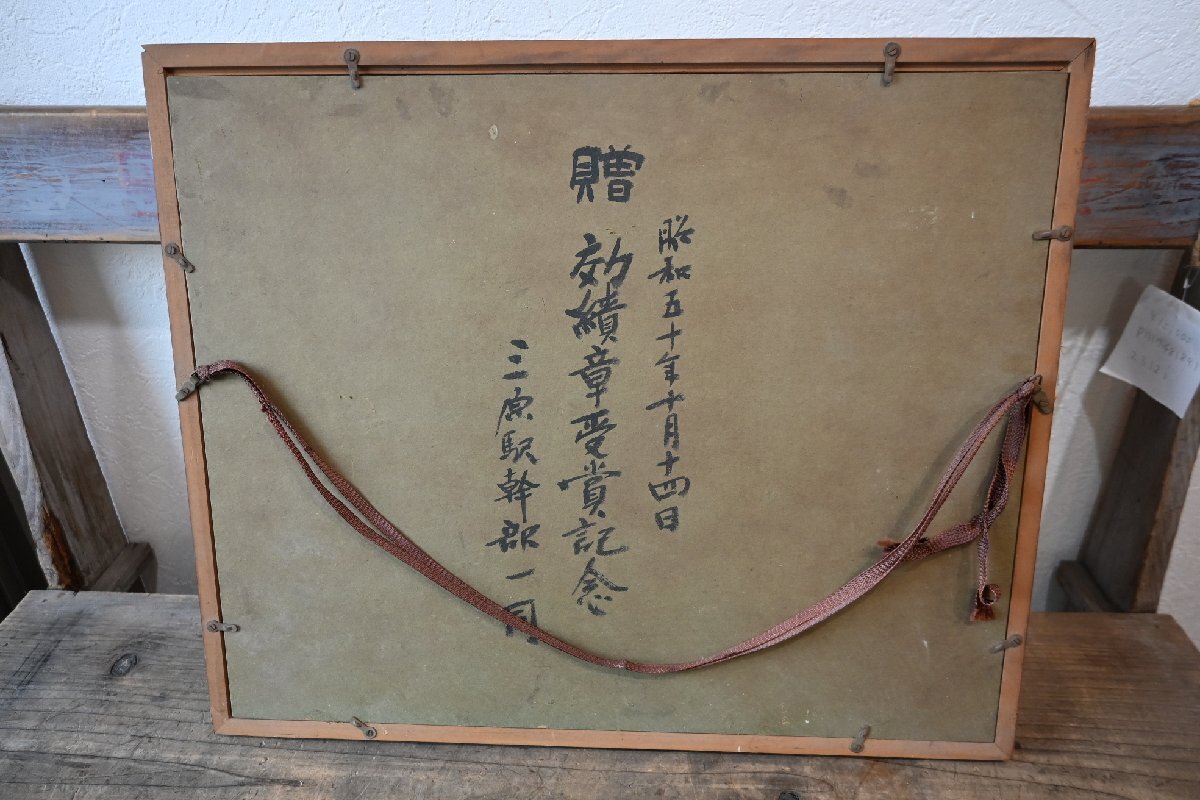 贈
昭和五十年十月十四日
効績章受賞記念
三原駅幹部一同